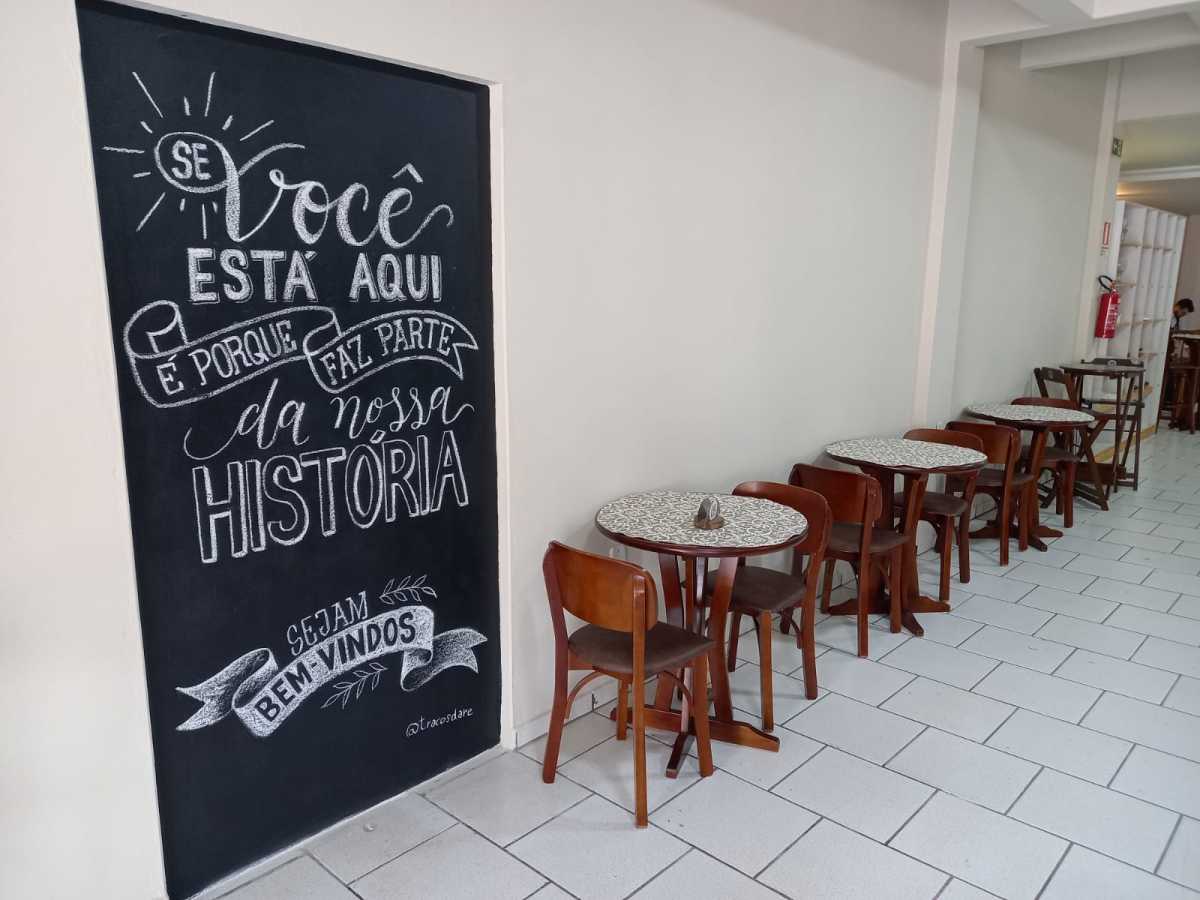 SE Você
ESTÁ AQUI
É PORQUE FAZ PARTE
da nossa
HISTÓRIA
SEJAM
BEM-VINDOS
@tracosdare